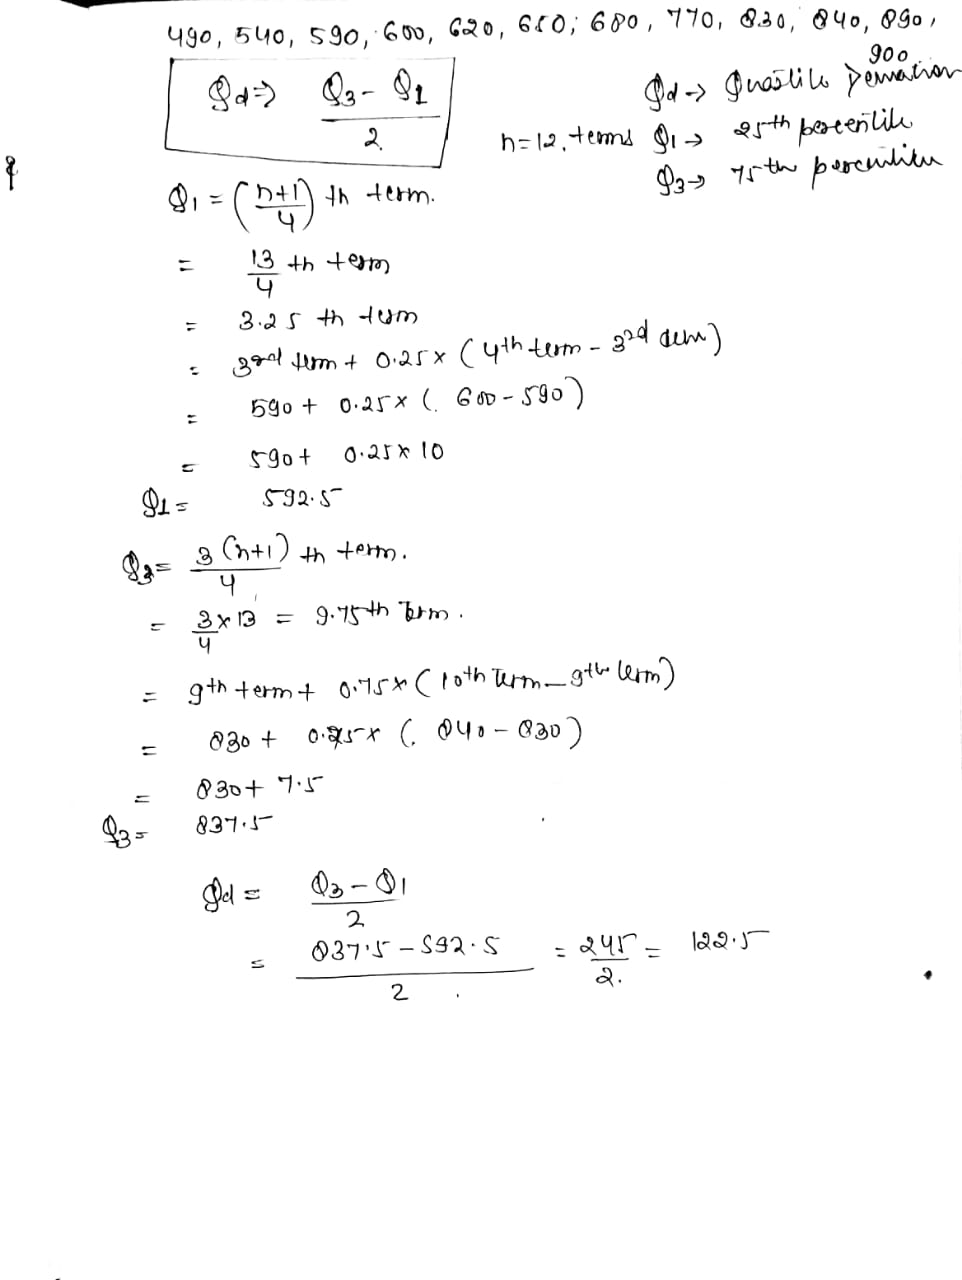 490, 540, 590, 600, 620, 650; 680, 770, 830, 840, 890,
900
Qd ⇒ Q3 - Q1 / 2
Qd → Quartile Deviation
n=12, terms Q1 → 25th percentile
Q3 → 75th percentile
Q1 = (n+1 / 4) th term.
= 13/4 th term
= 3.25 th term
= 3rd term + 0.25 × (4th term - 3rd term)
= 590 + 0.25 × (600 - 590)
= 590 + 0.25 × 10
Q1 = 592.5
Q3 = 3(n+1) / 4 th term.
= 3/4 × 13 = 9.75th Term.
= 9th term + 0.75 × (10th Term - 9th term)
= 830 + 0.75 × (840 - 830)
= 830 + 7.5
Q3 = 837.5
Qd = Q3 - Q1 / 2
= 837.5 - 592.5 / 2 = 245 / 2. = 122.5